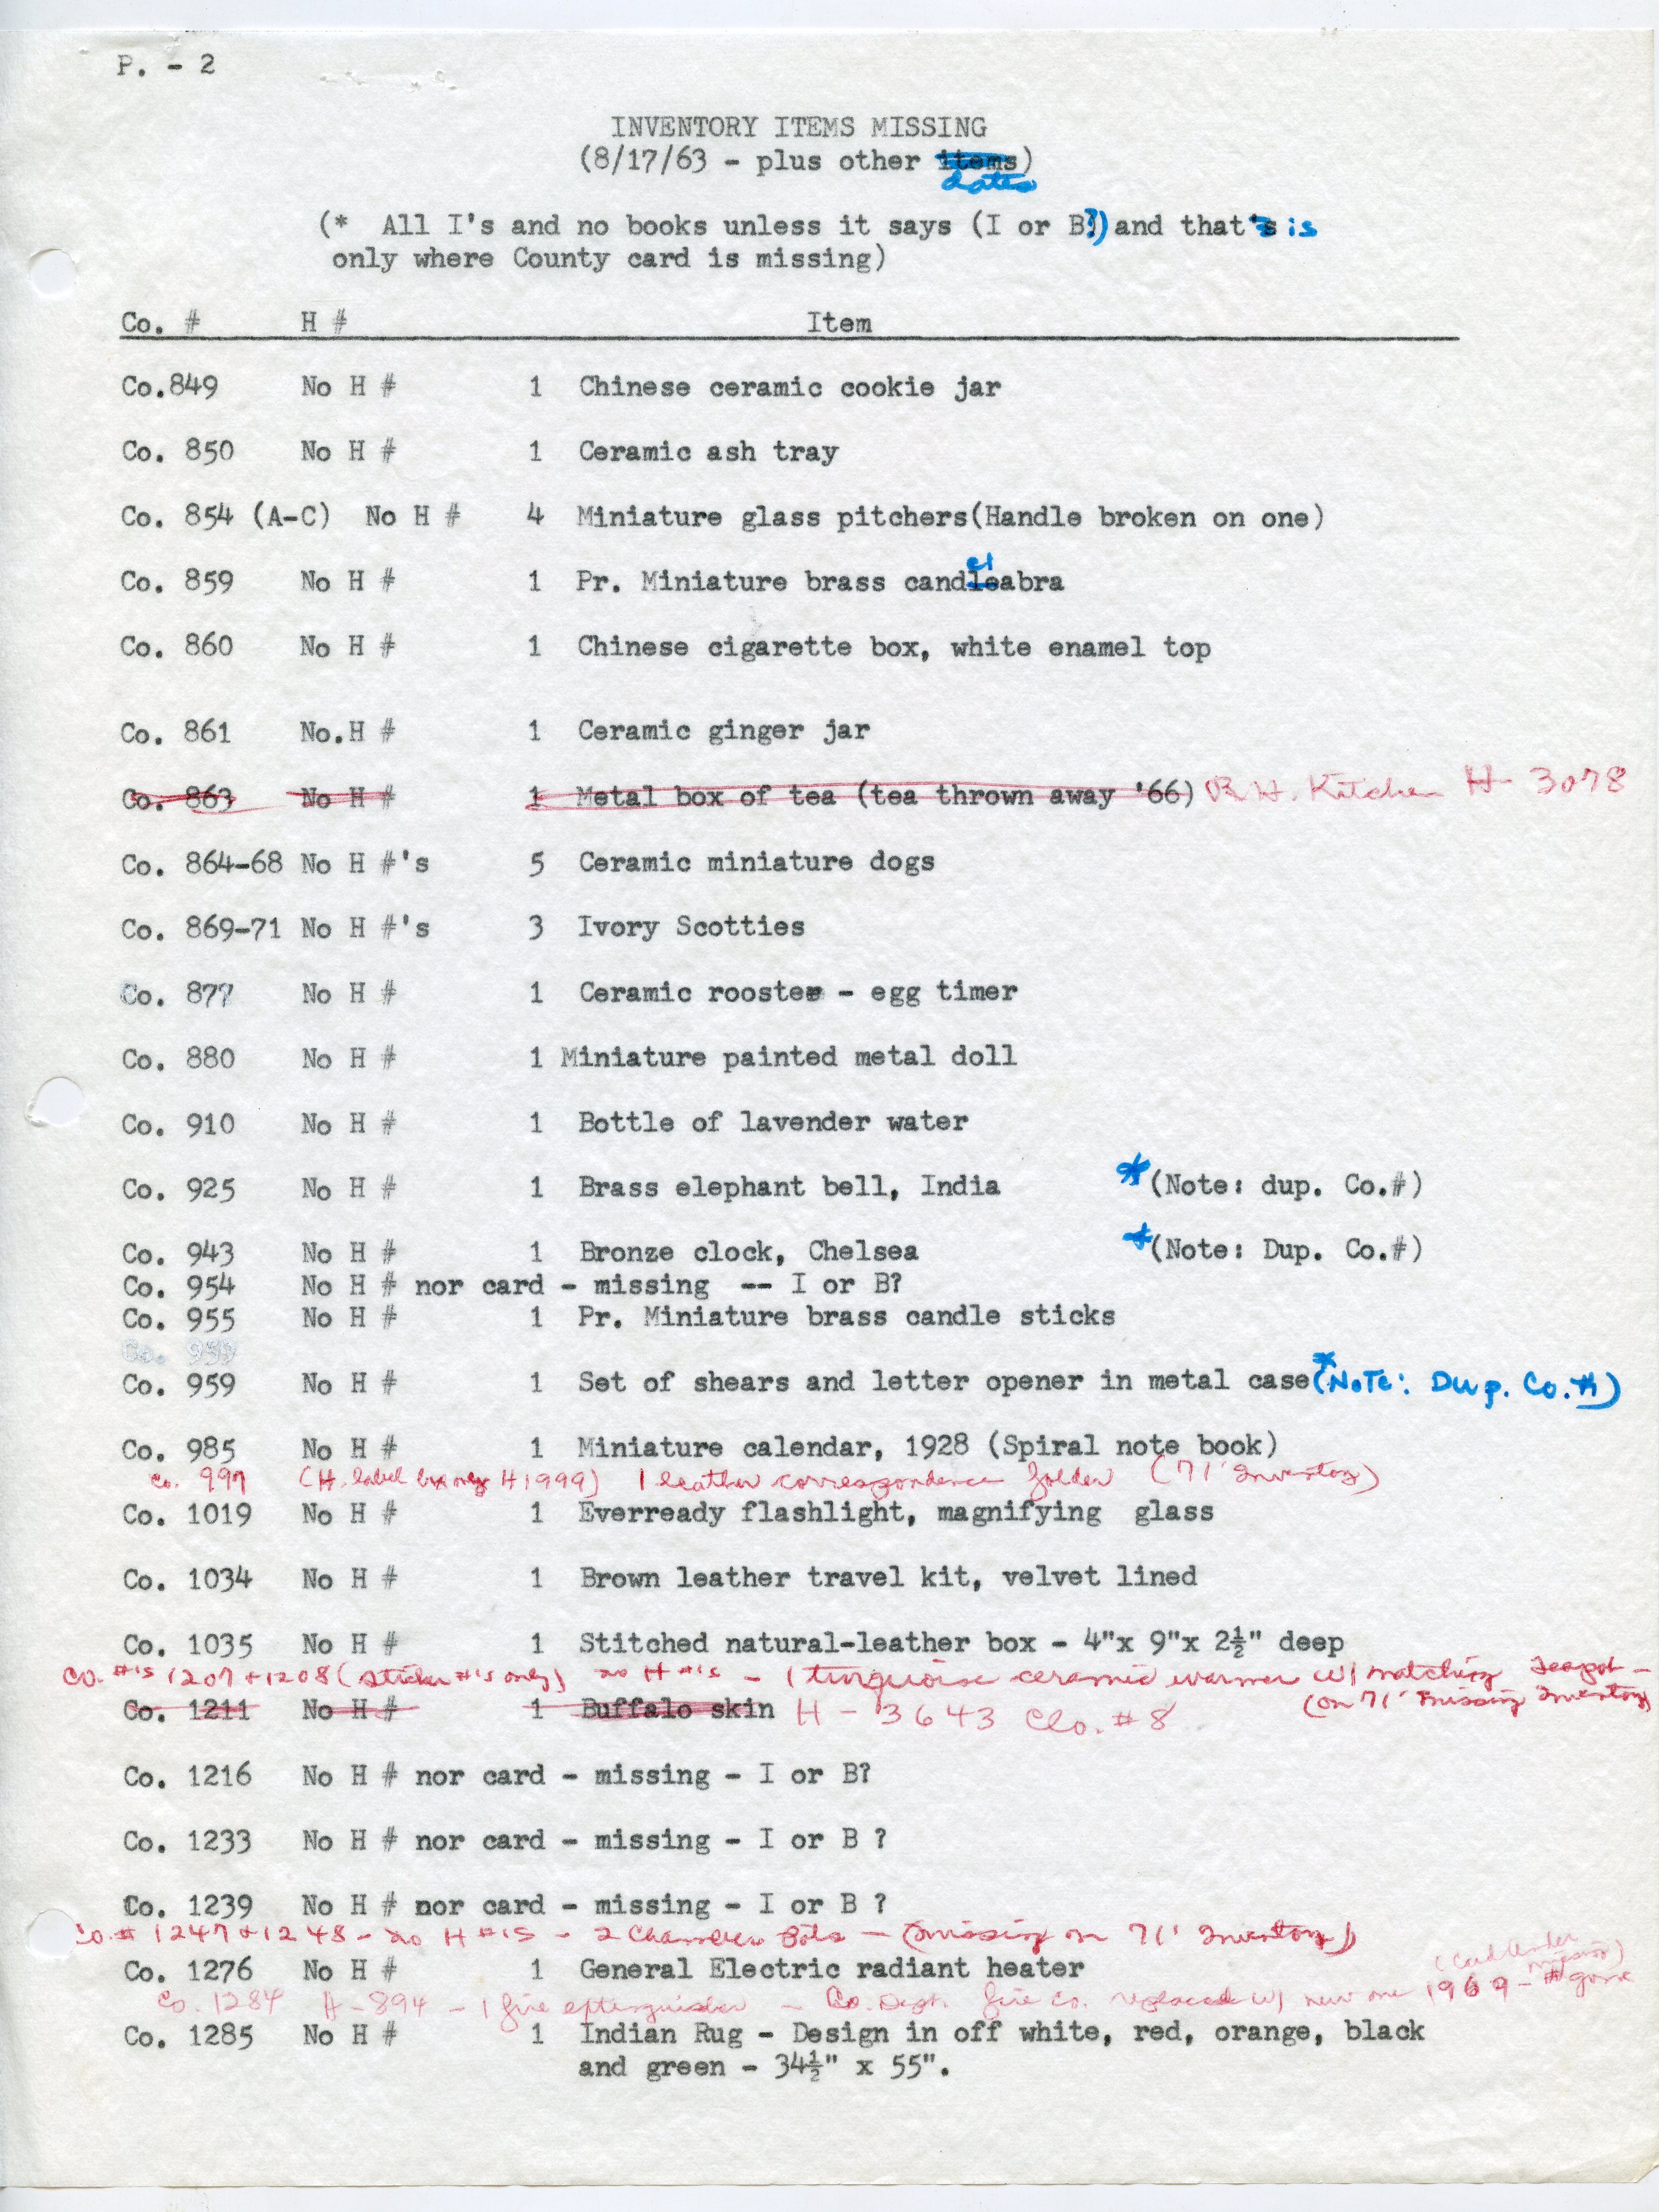 P. - 2
INVENTORY ITEMS MISSING
(8/17/63 - plus other items)
dates
(* All I's and no books unless it says (I or B?) and that's is
only where County card is missing)
Co. # H # Item
Co.849 No H # 1 Chinese ceramic cookie jar
Co. 850 No H # 1 Ceramic ash tray
Co. 854 (A-C) No H # 4 Miniature glass pitchers(Handle broken on one)
el
Co. 859 No H # 1 Pr. Miniature brass candleabra
Co. 860 No H # 1 Chinese cigarette box, white enamel top
Co. 861 No.H # 1 Ceramic ginger jar
Co. 863 No H # 1 Metal box of tea (tea thrown away '66) R.H. Kitchen H- 3078
Co. 864-68 No H #'s 5 Ceramic miniature dogs
Co. 869-71 No H #'s 3 Ivory Scotties
Co. 877 No H # 1 Ceramic rooster - egg timer
Co. 880 No H # 1 Miniature painted metal doll
Co. 910 No H # 1 Bottle of lavender water
Co. 925 No H # 1 Brass elephant bell, India *(Note: dup. Co.#)
Co. 943 No H # 1 Bronze clock, Chelsea *(Note: Dup. Co.#)
Co. 954 No H # nor card - missing -- I or B?
Co. 955 No H # 1 Pr. Miniature brass candle sticks
Co. 959 No H # 1 Set of shears and letter opener in metal case *(NoTe: Dup. Co.#)
Co. 985 No H # 1 Miniature calendar, 1928 (Spiral note book)
Co. 997 (H. label H1999) 1 leather correspondence folder (71' Inventory)
Co. 1019 No H # 1 Everready flashlight, magnifying glass
Co. 1034 No H # 1 Brown leather travel kit, velvet lined
Co. 1035 No H # 1 Stitched natural-leather box - 4"x 9"x 2½" deep
Co. #'s 1207 + 1208 (sticker #'s only) no H #'s - 1 turquoise ceramic warmer w/ matching teapot -
(on 71' missing Inventory)
Co. 1211 No H # 1 Buffalo skin H - 3643 Clo. # 8
Co. 1216 No H # nor card - missing - I or B?
Co. 1233 No H # nor card - missing - I or B ?
Co. 1239 No H # nor card - missing - I or B ?
Co. # 1247 + 1248 - no H #'s - 2 Chamber Pots - (missing on 71' Inventory)
Co. 1276 No H # 1 General Electric radiant heater
(Card under missing)
Co. 1284 H-894 - 1 fire extinguisher - Co. Dept. fire Co. replaced w/ new one 1969 - # gone
Co. 1285 No H # 1 Indian Rug - Design in off white, red, orange, black
and green - 34½" x 55".